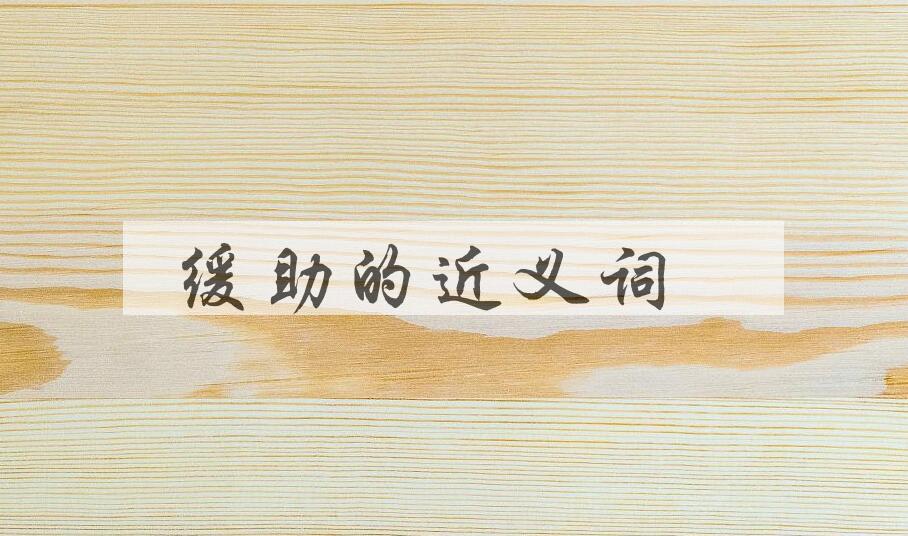 缓助的近义词